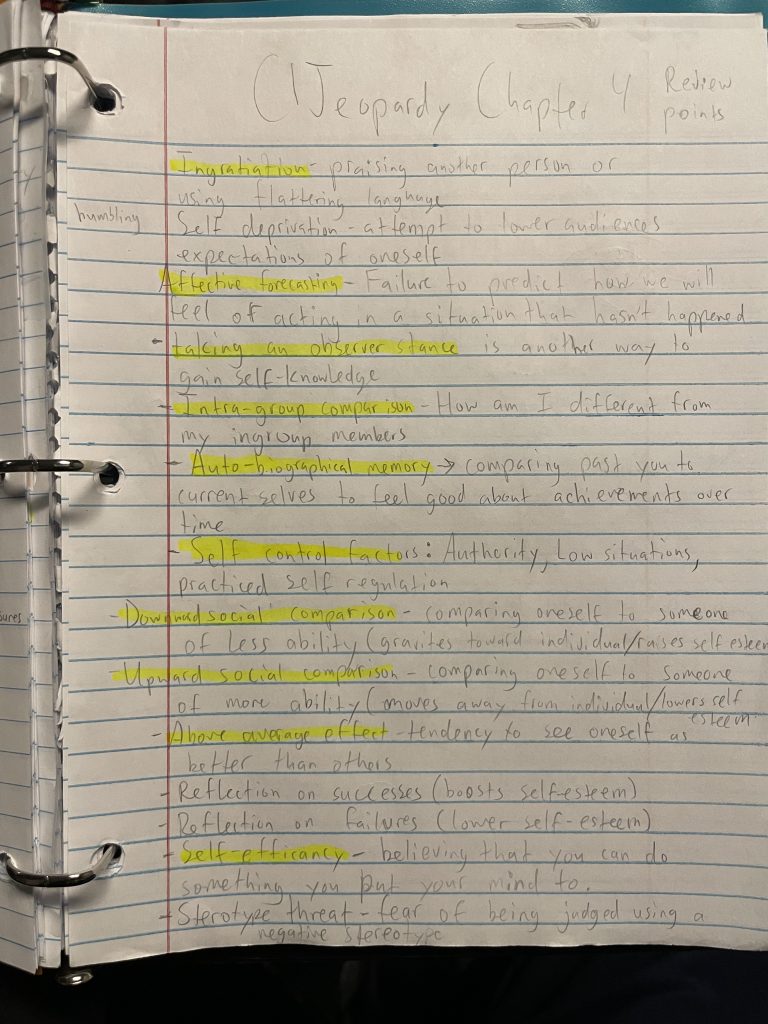 Jeopardy Chapter 4 Review points
Ingratiation - praising another person or
using flattering language
humbling
Self deprivation - attempt to lower audiences
expectations of oneself
Affective forecasting - Failure to predict how we will
feel of acting in a situation that hasn't happened
- taking an observer stance is another way to
gain self-knowledge
- Intra-group comparison - How am I different from
my ingroup members
- Auto-biographical memory → comparing past you to
current selves to feel good about achievements over
time
- Self control factors: Authority, Low situations,
practiced self regulation
- Downward social comparison - comparing oneself to someone
of less ability (gravites toward individual/raises self esteem
- Upward social comparison - comparing oneself to someone
of more ability (moves away from individual/lowers self
esteem
- Above average effect - tendency to see oneself as
better than others
- Reflection on successes (boosts self-esteem)
- Reflection on failures (lower self-esteem)
- Self-efficancy - believing that you can do
something you put your mind to.
- Sterotype threat - fear of being judged using a
negative stereotype